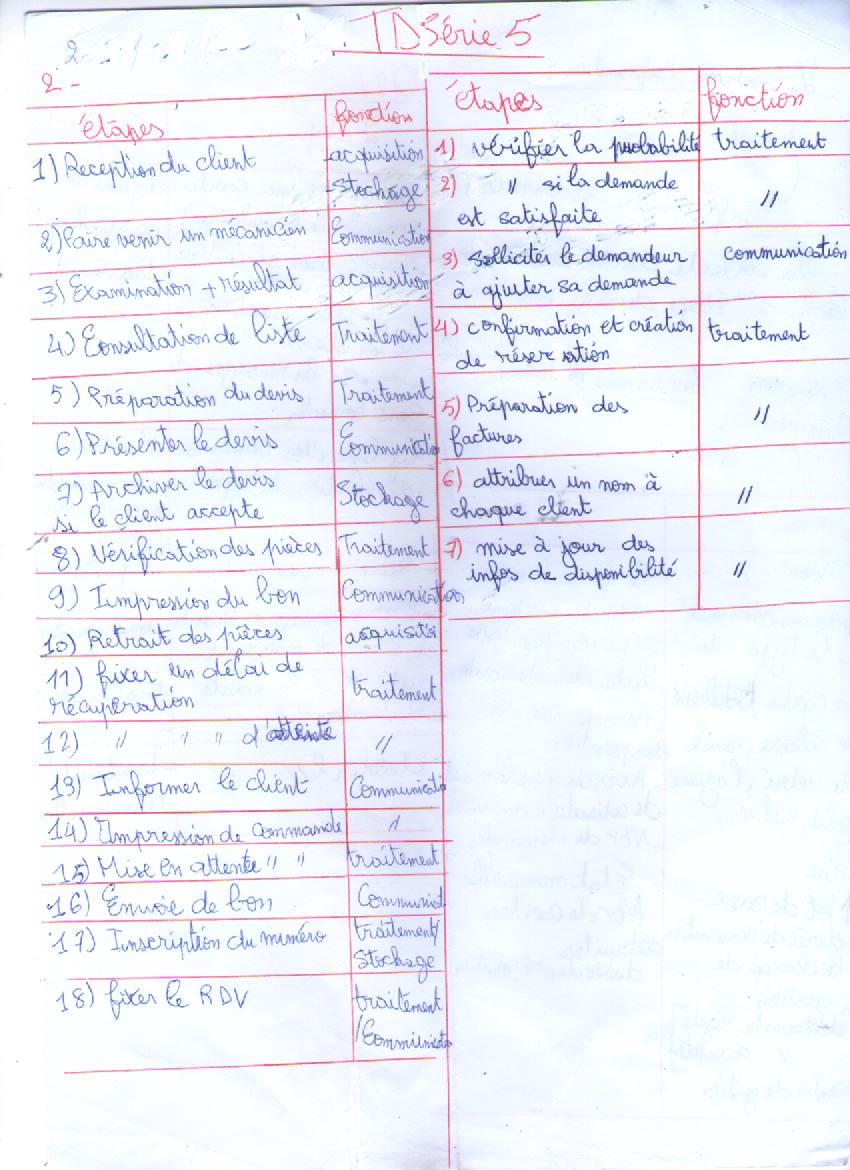 TD Série 5
2-
étapes fonction
1) Reception du client -acquisition
-stockage
2) Faire venir un mécanicien Communication
3) Examination + résultat acquisition
4) Consultation de liste Traitement
5) Préparation du devis Traitement
6) Présenter le devis Communicatio
7) Archiver le devis Stockage
si le client accepte
8) Vérification des pièces Traitement
9) Impression du bon Communication
10) Retrait des pièces acquisitio
11) fixer un délai de
récupération traitement
12) " " " d'attente "
13) Informer le client Communicatio
14) Impression de commande "
15) Mise en attente " " traitement
16) Envoie de bon Communicat
17) Inscription du numéro traitement/
Stockage
18) fixer le RDV traitement
/Communicatio
étapes fonction
1) vérifier la probabilité traitement
2) " si la demande "
est satisfaite
3) solliciter le demandeur communication
à ajuster sa demande
4) confirmation et création traitement
de réservation
5) Préparation des "
factures
6) attribuer un nom à "
chaque client
7) mise à jour des
infos de disponibilité "